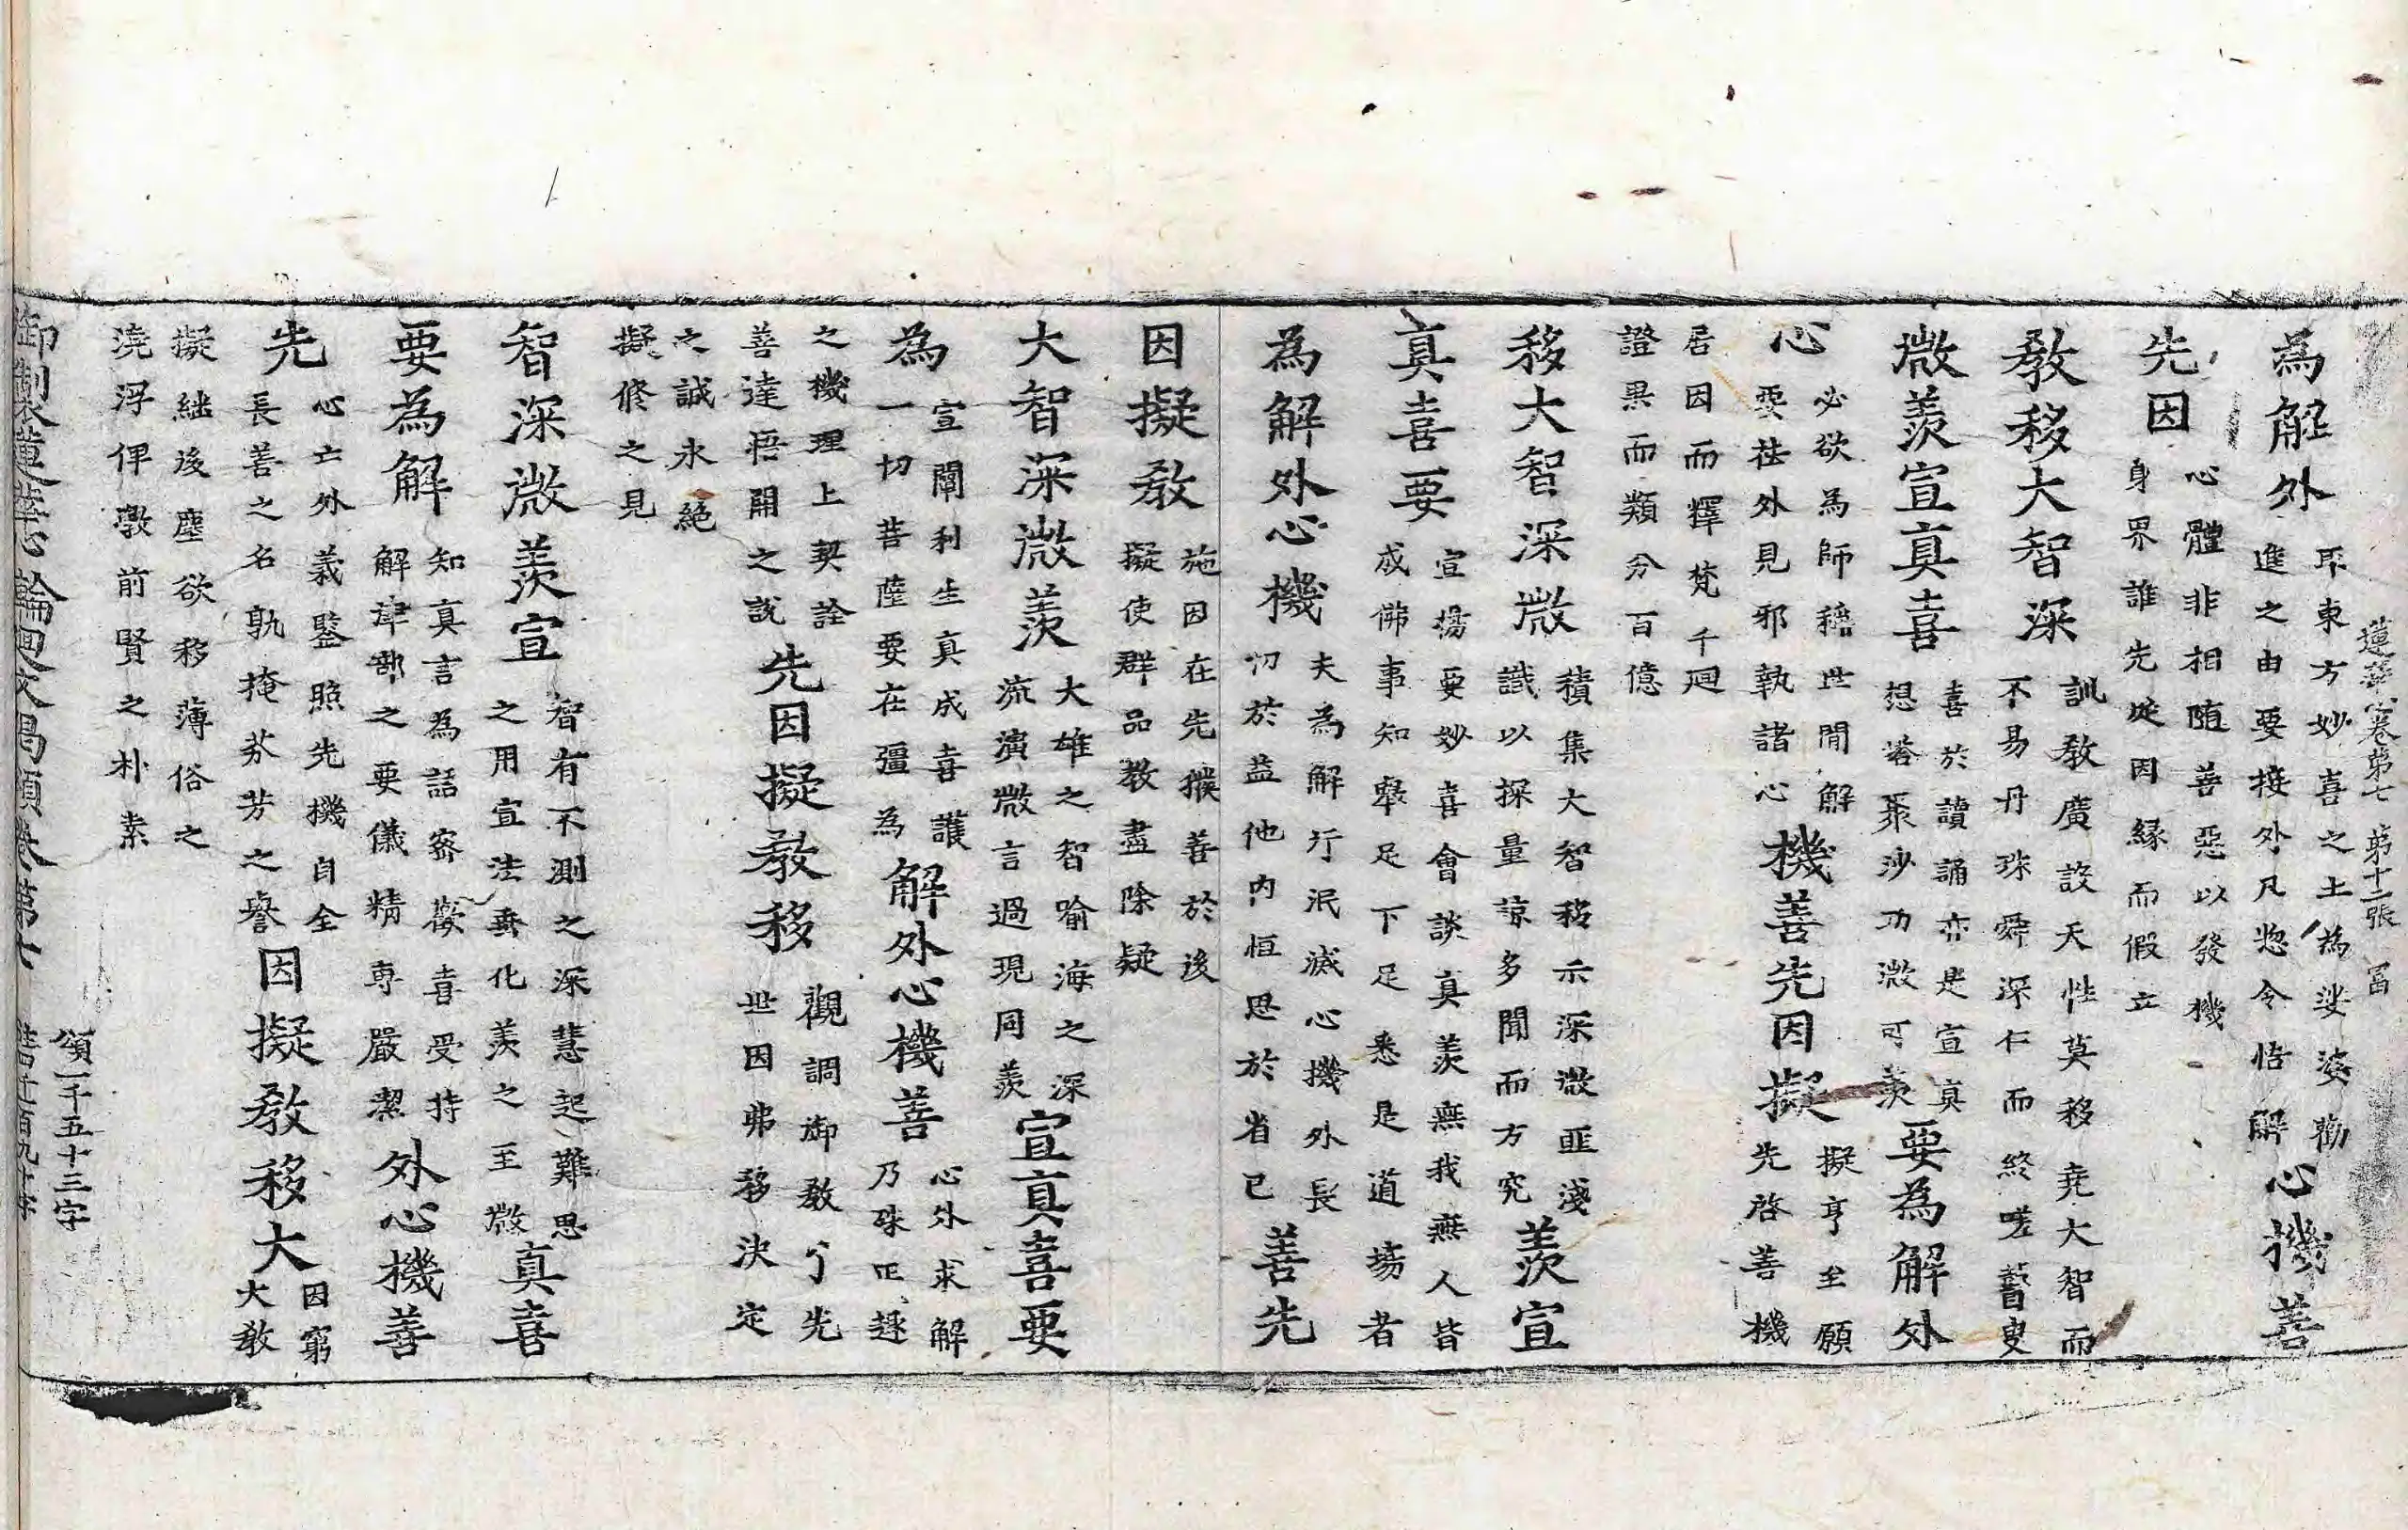 蓮華心卷第七　第十二張　富
為解外
耶東方妙喜之土為娑婆勸
進之由要接外凡惣令悟解
心機善
先因
心體非相随善惡以發機
身界誰先從因緣而假立
教移大智深
訓教廣設天性莫移堯大智而
不易丹珠舜深仁而終嗟瞽叟
微羨宣真喜
喜於讀誦亦是宣真
想塔聚沙功微可羨
要為解外
心
必欲為師稱世閒解
要祛外見邪執諸心
機善先因擬
擬亨至願
先啓善機
居因而釋梵千廻
證果而類分百億
移大智深微
積集大智移示深微匪淺
識以探量諒多聞而方究
羨宣
真喜要
宣揚要妙喜會談真羨無我無人皆
成佛事知舉足下足悉是道場者
為解外心機
夫為解行泯滅心機外長
切於益他内恒思於省已
善先
因擬教
施因在先獲善於後
擬使群品教盡除疑
大智深微羨
大雄之智喻海之深
流演微言過現同羨
宣真喜要
為
宣闡利生真成喜護
一切菩薩要在彊為
解外心機善
心外求解
乃殊正趣
之機理上契詮
善達悟開之說
先因擬教移
觀調御教了先
世因弗移決定
之誠永絕
擬修之見
智深微羨宣
智有不測之深慧起難思
之用宣法垂化羨之至微
真喜
要為解
知真言為語密歡喜受持
解肆部之要儀精專嚴潔
外心機善
先
心亡外義鑒照先機自全
長善之名孰掩芬芳之譽
因擬教移大
因窮
大教
擬絀後塵欲移薄俗之
澆浮俾斆前賢之朴素
頌一千五十三字
御製蓮華心輪廻文偈頌卷第七